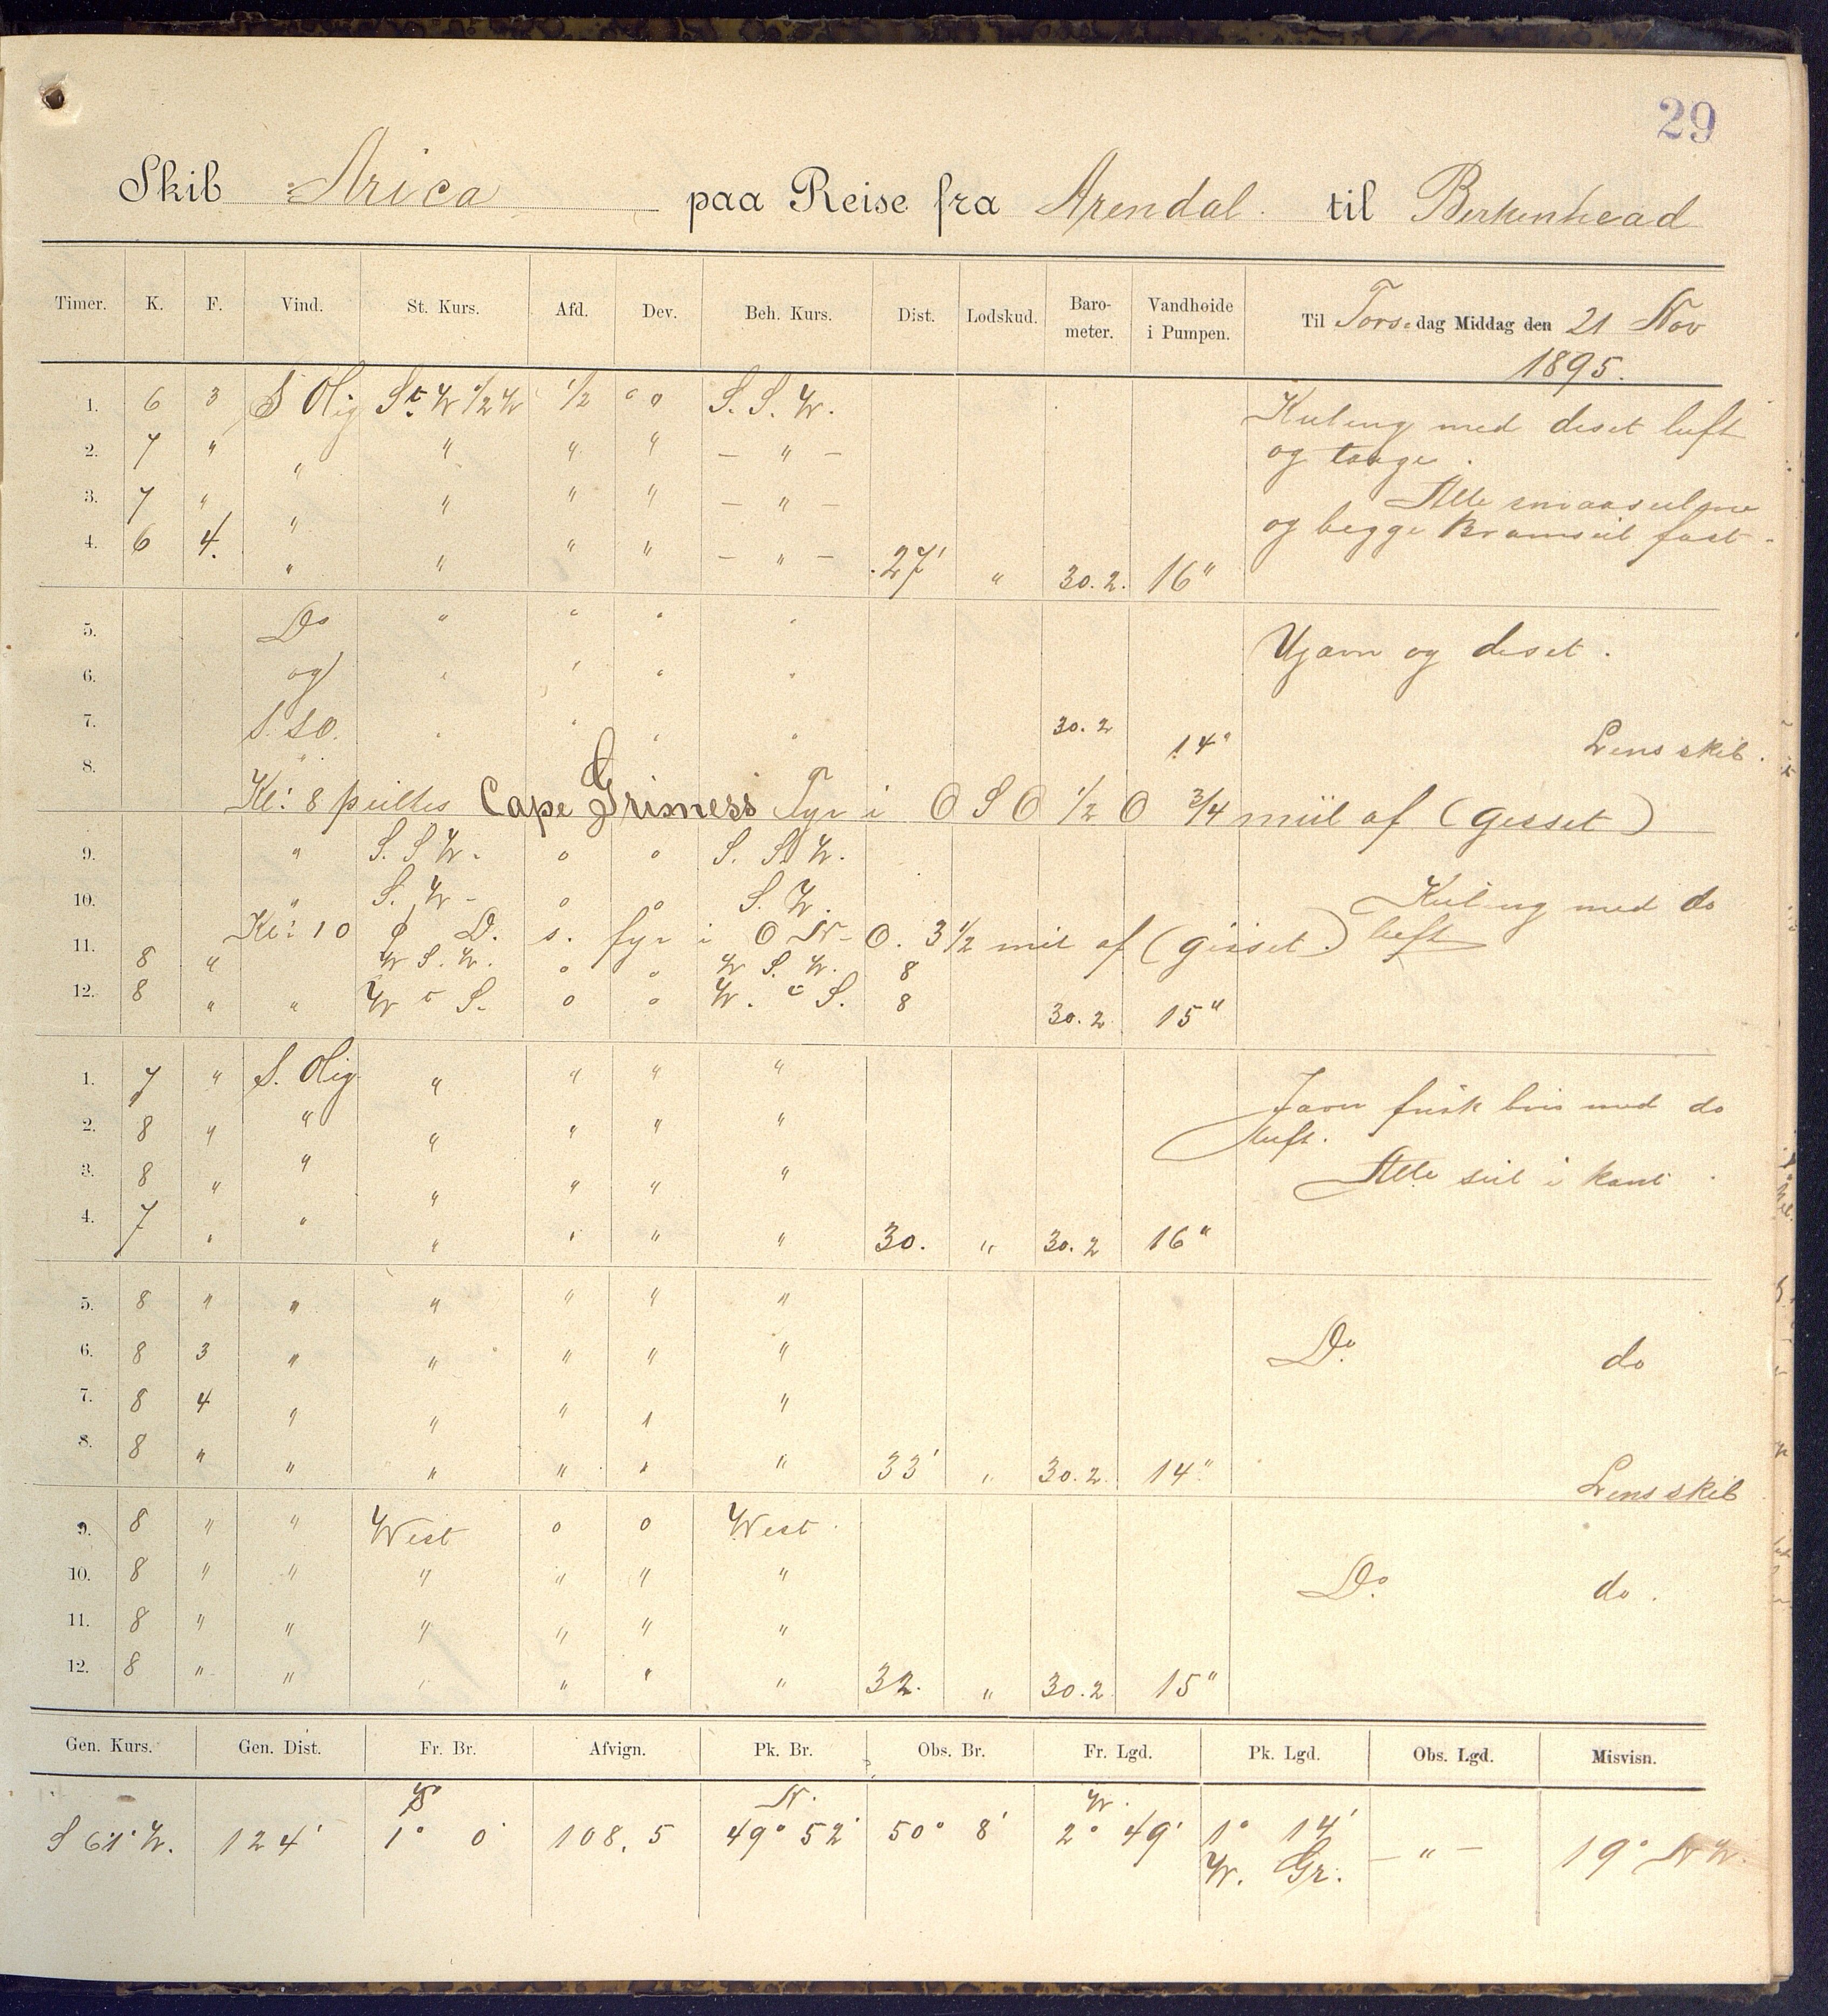 29
Skib Arica paa Reise fra Arendal. til Berkenhead
Timer. K. F. Vind. St. Kurs. Afd. Dev. Beh. Kurs. Dist. Lodskud. Baro-meter. Vandhøide i Pumpen. Til Tors-dag Middag den 21 Nov
1895.
1. 6 3 S Olig St. W 1/2 W 1/2 " " S. S. W. Kuling med diset luft
2. 7 " " " " " – " – og taage.
3. 7 " " " " " – " – Alle smaaseilene
4. 6 4. " " " " – " – 27' " 30.2. 16" og begge Bramseil fast.
5. Do " " " " Ujævn og diset.
6. og " " " "
7. S. SO. " " " " 30.2 14" Lens skib.
8. "
Kl: 8 peiltes Cape Grisness Fyr i O S O 1/2 O 3/4 miil af (gisset)
9. " S. S W. o o S. S. W.
10. " S. W. o o S. W. Kuling med do
Kl: 10 D. s. fyr i O N O. 3 1/2 mil af (gisset.) luft
11. 8 " W S. W. o o W S. W. 8
12. 8 " " W t S. o o W. t S. 8 30.2 15"
1. 7 " S. Olig " " " " Jævn frisk bris med do
2. 8 " " " " " " luft.
3. 8 " " " " " " Alle seil i kant.
4. 7 " " " " " " 30. " 30.2 16"
5. 8 " " " " " "
6. 8 3 " " " " " Do. do
7. 8 4 " " " " "
8. 8 " " " " " " 33' " 30.2. 14" Lens skib
9. 8 " " West o o West
10. 8 " " " " " " Do. do.
11. 8 " " " " " "
12. 8 " " " " " " 32. " 30.2 15"
Gen. Kurs. Gen. Dist. Fr. Br. Afvign. Pk. Br. Obs. Br. Fr. Lgd. Pk. Lgd. Obs. Lgd. Misvisn.
N. W.
S 61° W. 124' 1° 0' 108.5 49° 52' 50° 8' 2° 49' 1° 14' – " – 19° N W.
W. Gr.